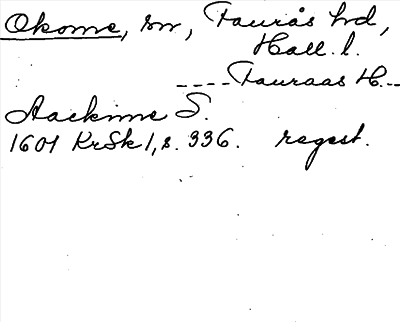 Okome, sn, Faurås hd,
Hall. l.
---- Fauraas H. --
Aackime S.
1601 KrSk 1, s. 336. regest.